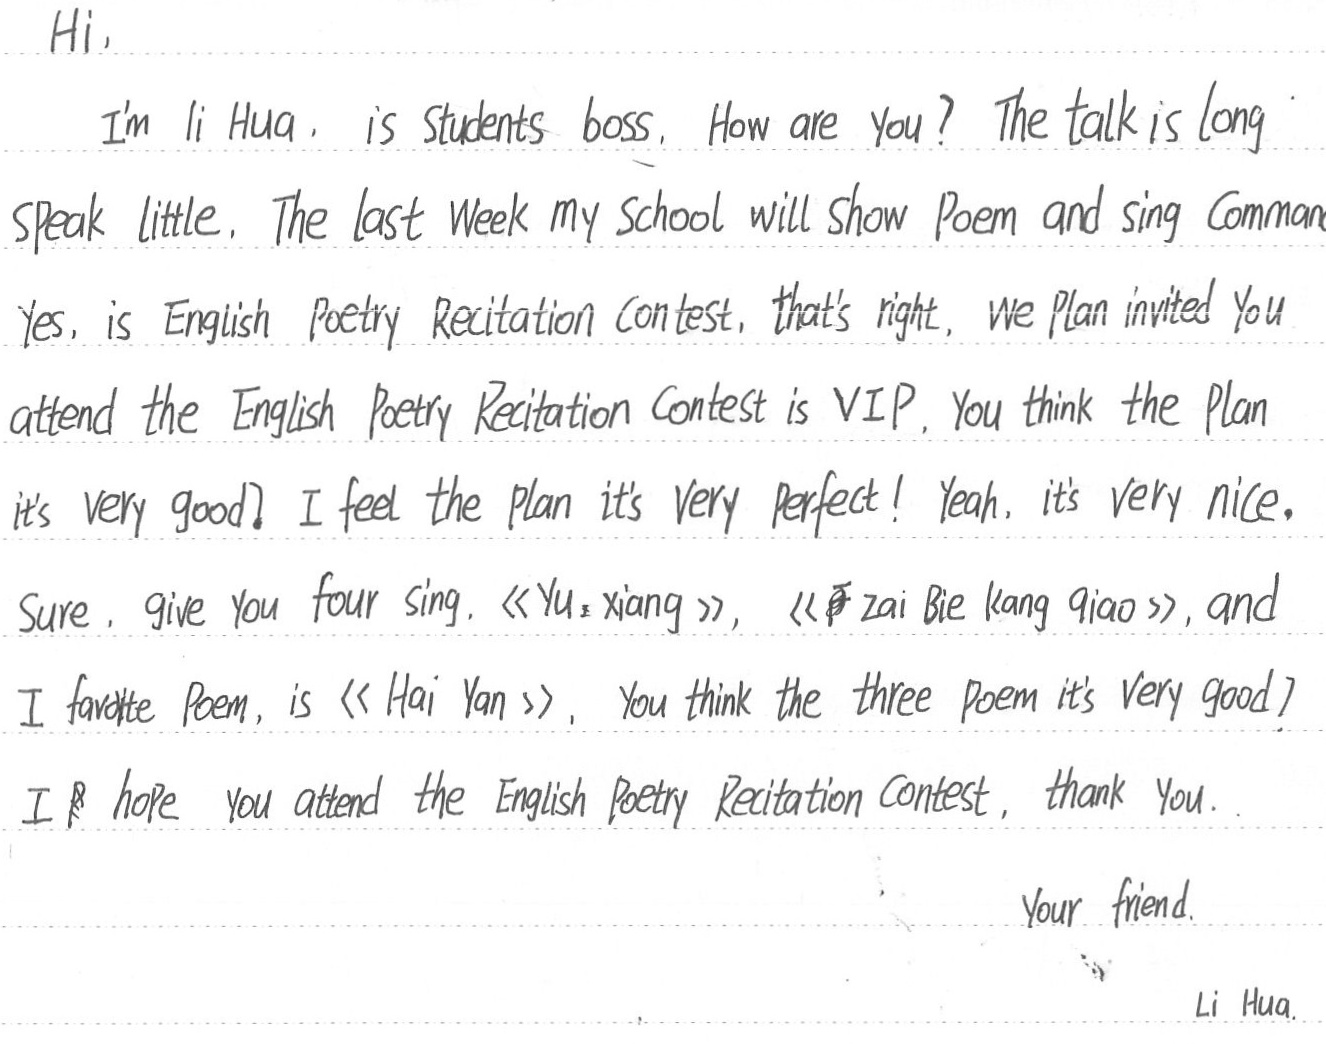 Hi,
I'm li Hua. is Students boss. How are you? The talk is long
speak little. The last week my school will show Poem and sing Comman
Yes, is English Poetry Recitation Contest, that's right, We Plan invited You
attend the English Poetry Recitation Contest is VIP. You think the Plan
it's very good? I feel the plan it's very perfect! Yeah, it's very nice.
Sure, give you four sing. 《Yu xiang》, 《zai Bie kang qiao》, and
I favorite Poem, is 《Hai Yan》. You think the three poem it's very good?
I hope you attend the English Poetry Recitation Contest, thank you.
Your friend.
Li Hua.